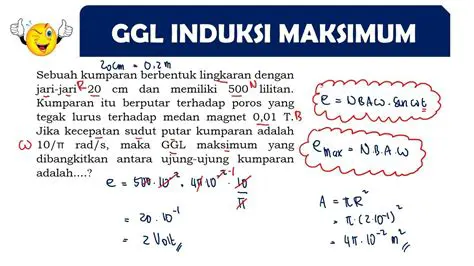 GGL INDUKSI MAKSIMUM
20cm = 0.2m
Sebuah kumparan berbentuk lingkaran dengan
jari-jari R 20 cm dan memiliki 500 N lilitan.
Kumparan itu berputar terhadap poros yang
tegak lurus terhadap medan magnet 0,01 T. B
Jika kecepatan sudut putar kumparan adalah
ω 10/π rad/s, maka GGL maksimum yang
dibangkitkan antara ujung-ujung kumparan
adalah....?
e = NBAω. sin ωt
e max = N.B.A.ω
e = 500.10⁻² . 4π10⁻²⁻¹ . 10/π
= 20.10⁻¹
= 2 Volt
A = πR²
= π.(2.10⁻¹)²
= 4π.10⁻² m²